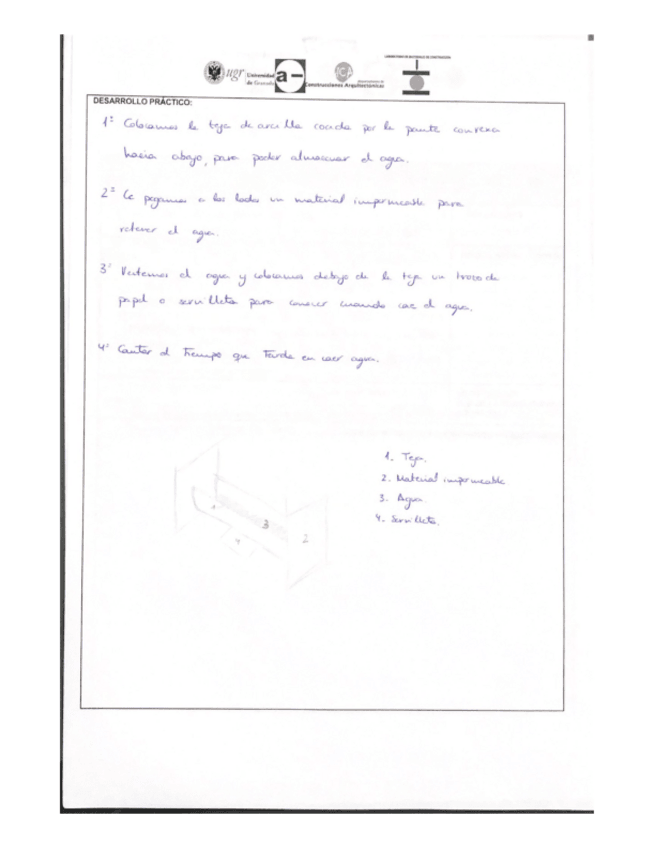 LABORATORIO DE MATERIALES DE CONSTRUCCIÓN
ugr Universidad de Granada
a—
Construcciones Arquitectónicas
DESARROLLO PRÁCTICO:
1º Colocamos la teja de arcilla cocida por la parte convexa
hacia abajo, para poder almacenar el agua.
2º Le pegamos a los lados un material impermeable para
retener el agua.
3º Vertemos el agua y colocamos debajo de la teja un trozo de
papel o servilleta para conocer cuando cae el agua.
4º Contar el tiempo que tarda en caer agua.
1. Teja.
2. Material impermeable
3. Agua.
4. Servilleta.
1
3
4
2